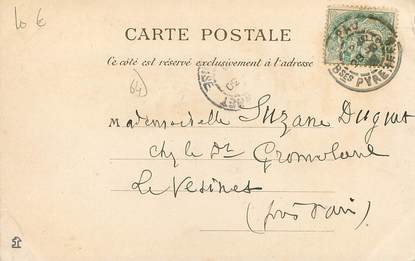 10 €
CARTE POSTALE
Ce côté est réservé exclusivement à l'adresse
PAU
BSES PYRENEES
64
Mademoiselle Suzane Duguet
chez le Dr
Le Vesinet
(près Paris)